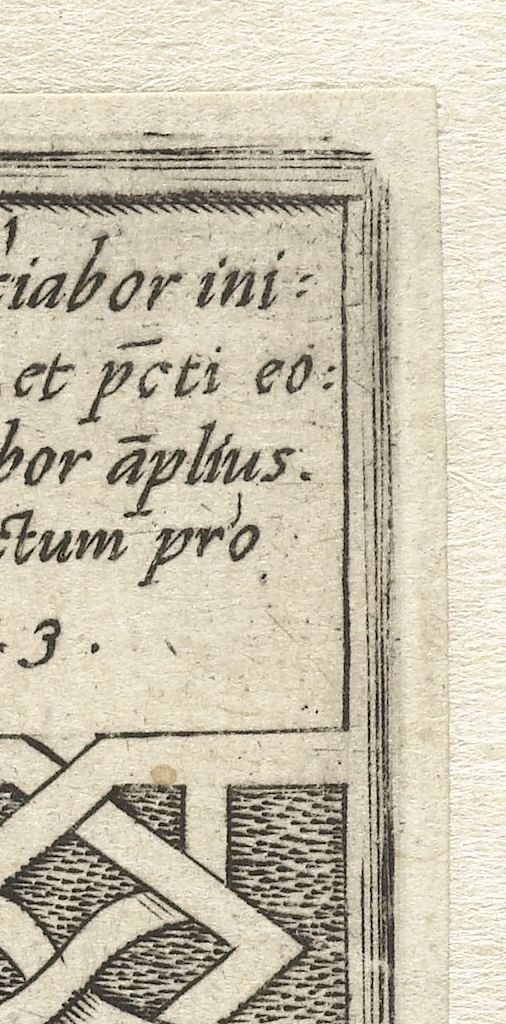 tiabor ini:
et p̄cti eo:
bor āplius.
ctum pro
3.